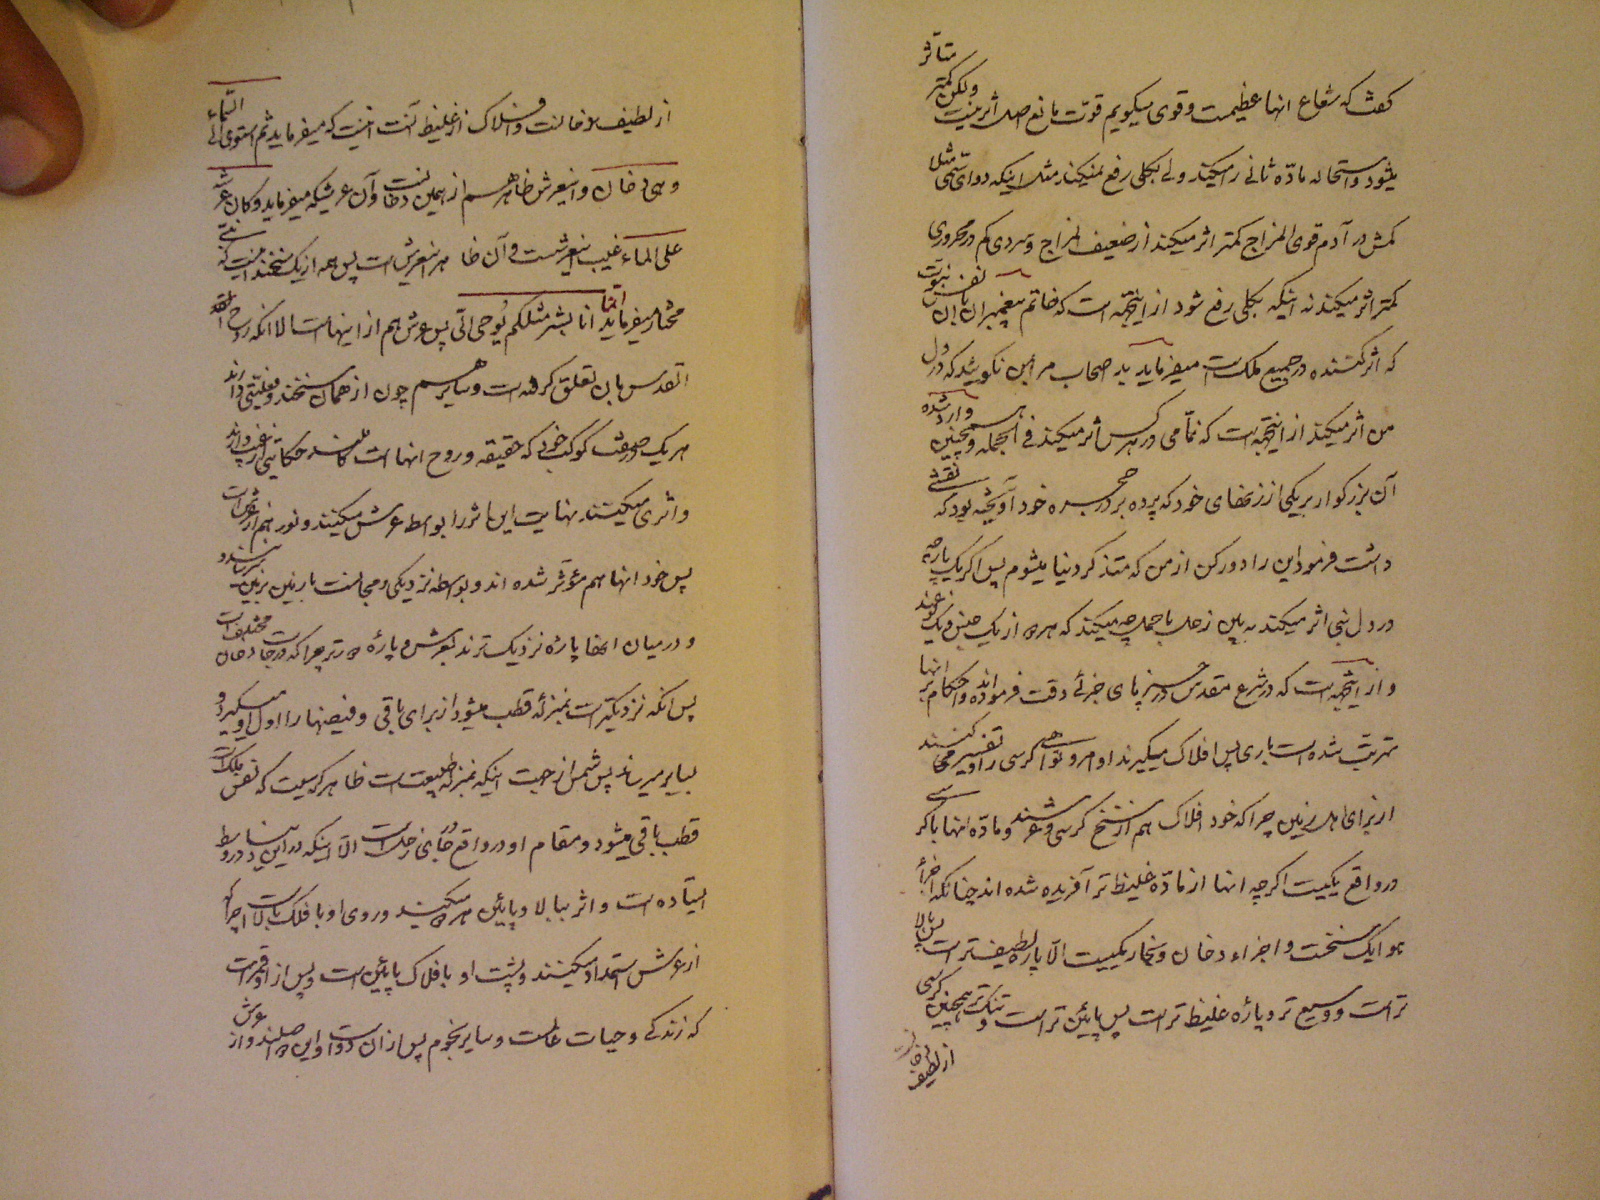 کفت که شعاع انها عظیمست و قوی میکویم قوت مانع اصل اثر نیست ولکن کمتر متأثر
میشود و استحاله مادّه ثانی را میکند ولی بکلی رفع نمیکند مثل اینکه دوای سمّی مثلا
کمش در آدم قوی المزاج کمتر اثر میکند از ضعیف المزاج و سردی کم در محروری
کمتر اثر میکند نه اینکه بکلی رفع شود از اینجهة است که خاتم پیغمبران بان نفس نبوت
که اثر کننده در جمیع ملک است میفرماید بد اصحاب مرا بمن نکوئید که در دل
من اثر میکند از اینجهة است که تمامی در هر کس اثر میکند فی الجمله و همچنین وارد شده
آن بزرکوار بر یکی از زنهای خود که پرده بر در حجره خود آویخته بود که نقشی
داشت فرمود این را دور کن از من که متذکر دنیا میشوم پس اکر یک پارچه
در دل نبی اثر میکند به بین زحل با جمل چه میکند که هر دو از یک جنس و یک نوعند
و از اینجهة است که در شرع مقدس در چیزهای جزئی دقت فرموده‌اند و احکام بر انها
مترتب شده است باری پس افلاک میکیرند اوامر و نواهی کرسی را و تفسیر می کنند
از برای اهل زمین چرا که خود افلاک هم از سنخ کرسی و عرشند و مادّه انها با کرسی
در واقع یکیست اکرچه انها از مادّه غلیظ تر آفریده شده اند چنانکه اجزاء
هوا یک سنخست و اجزاء دخان و بخار یکیست الّا پارهٔ لطیفتر است پس بالا
تر است و وسیع تر و پارهٔ غلیظ تر است پس پائین تر است و تنک تر همچنین کرسی
از لطیف
از لطیف دخانست و افلاک از غلیظ آنست اینست که میفرماید ثم استوی الی السماء
و هی دخان و اینعرش ظاهر هم از همین دخانست و آن عرشیکه میفرماید و کان عرشه
علی الماء غیب اینعرشست و آن ظاهر اینعرش است پس همه از یک سنخند
مختار میفرماید انما انا بشر مثلکم یوحی الیّ پس عرش هم از اینهاست الا انکه روح القدس
القدس بان تعلق کرفته است و سایر هم چون از همان سنخند
هر یک صورت کوکب جزئی که حقیقه و روح انها است
و اثری میکنند نهایت این اثر را بواسطه عرش میکنند و نور هم از عرش است
پس خود انها هم مؤثر شده اند و بواسطه نزدیکی و مجانست بازمین بزمین میرسانند و
و در میان انها پارهٔ نزدیک ترند بعرش و پارهٔ دورتر چرا که درجات دخان مختلف است
پس انکه نزدیکتر است بمنزله قطب میشود از برای باقی و فیضها را اول او میکیرد و
بسایر میرساند پس شمس از جهت اینکه بمنزله طبیعت است ظاهر کرسیست که نفس ملک است
قطب باقی میشود و مقام او در واقع جای زحل است الّا اینکه در این وسط
ایستاده است و اثر ببالا و پائین هر دو میکند و روی او با فلاک بالا است چرا که
از عرش استمداد میکنند و پشت او با فلاک پائین است و پس از او قمر است
که زندکی و حیات عالمست و سایر نجوم پس از ان دو است و این دو اصلند و از عرش